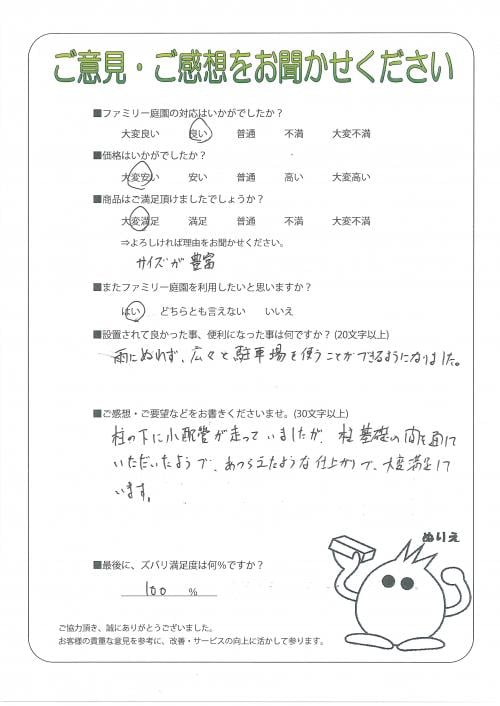 ご意見・ご感想をお聞かせください
■ファミリー庭園の対応はいかがでしたか？
大変良い　良い　普通　不満　大変不満
■価格はいかがでしたか？
大変安い　安い　普通　高い　大変高い
■商品はご満足頂けましたでしょうか？
大変満足　満足　普通　不満　大変不満
⇒よろしければ理由をお聞かせください。
サイズが豊富
■またファミリー庭園を利用したいと思いますか？
はい　どちらとも言えない　いいえ
■設置されて良かった事、便利になった事は何ですか？(20文字以上)
雨にぬれず、広々と駐車場を使うことができるようになりました。
■ご感想・ご要望などをお書きくださいませ。(30文字以上)
柱の下に小配管が走っていましたが、柱基礎の間を通して
いただいたようで、あつらえたような仕上がりで、大変満足して
います。
ぬりえ
■最後に、ズバリ満足度は何％ですか？
100 ％
ご協力頂き、誠にありがとうございました。
お客様の貴重な意見を参考に、改善・サービスの向上に活かして参ります。